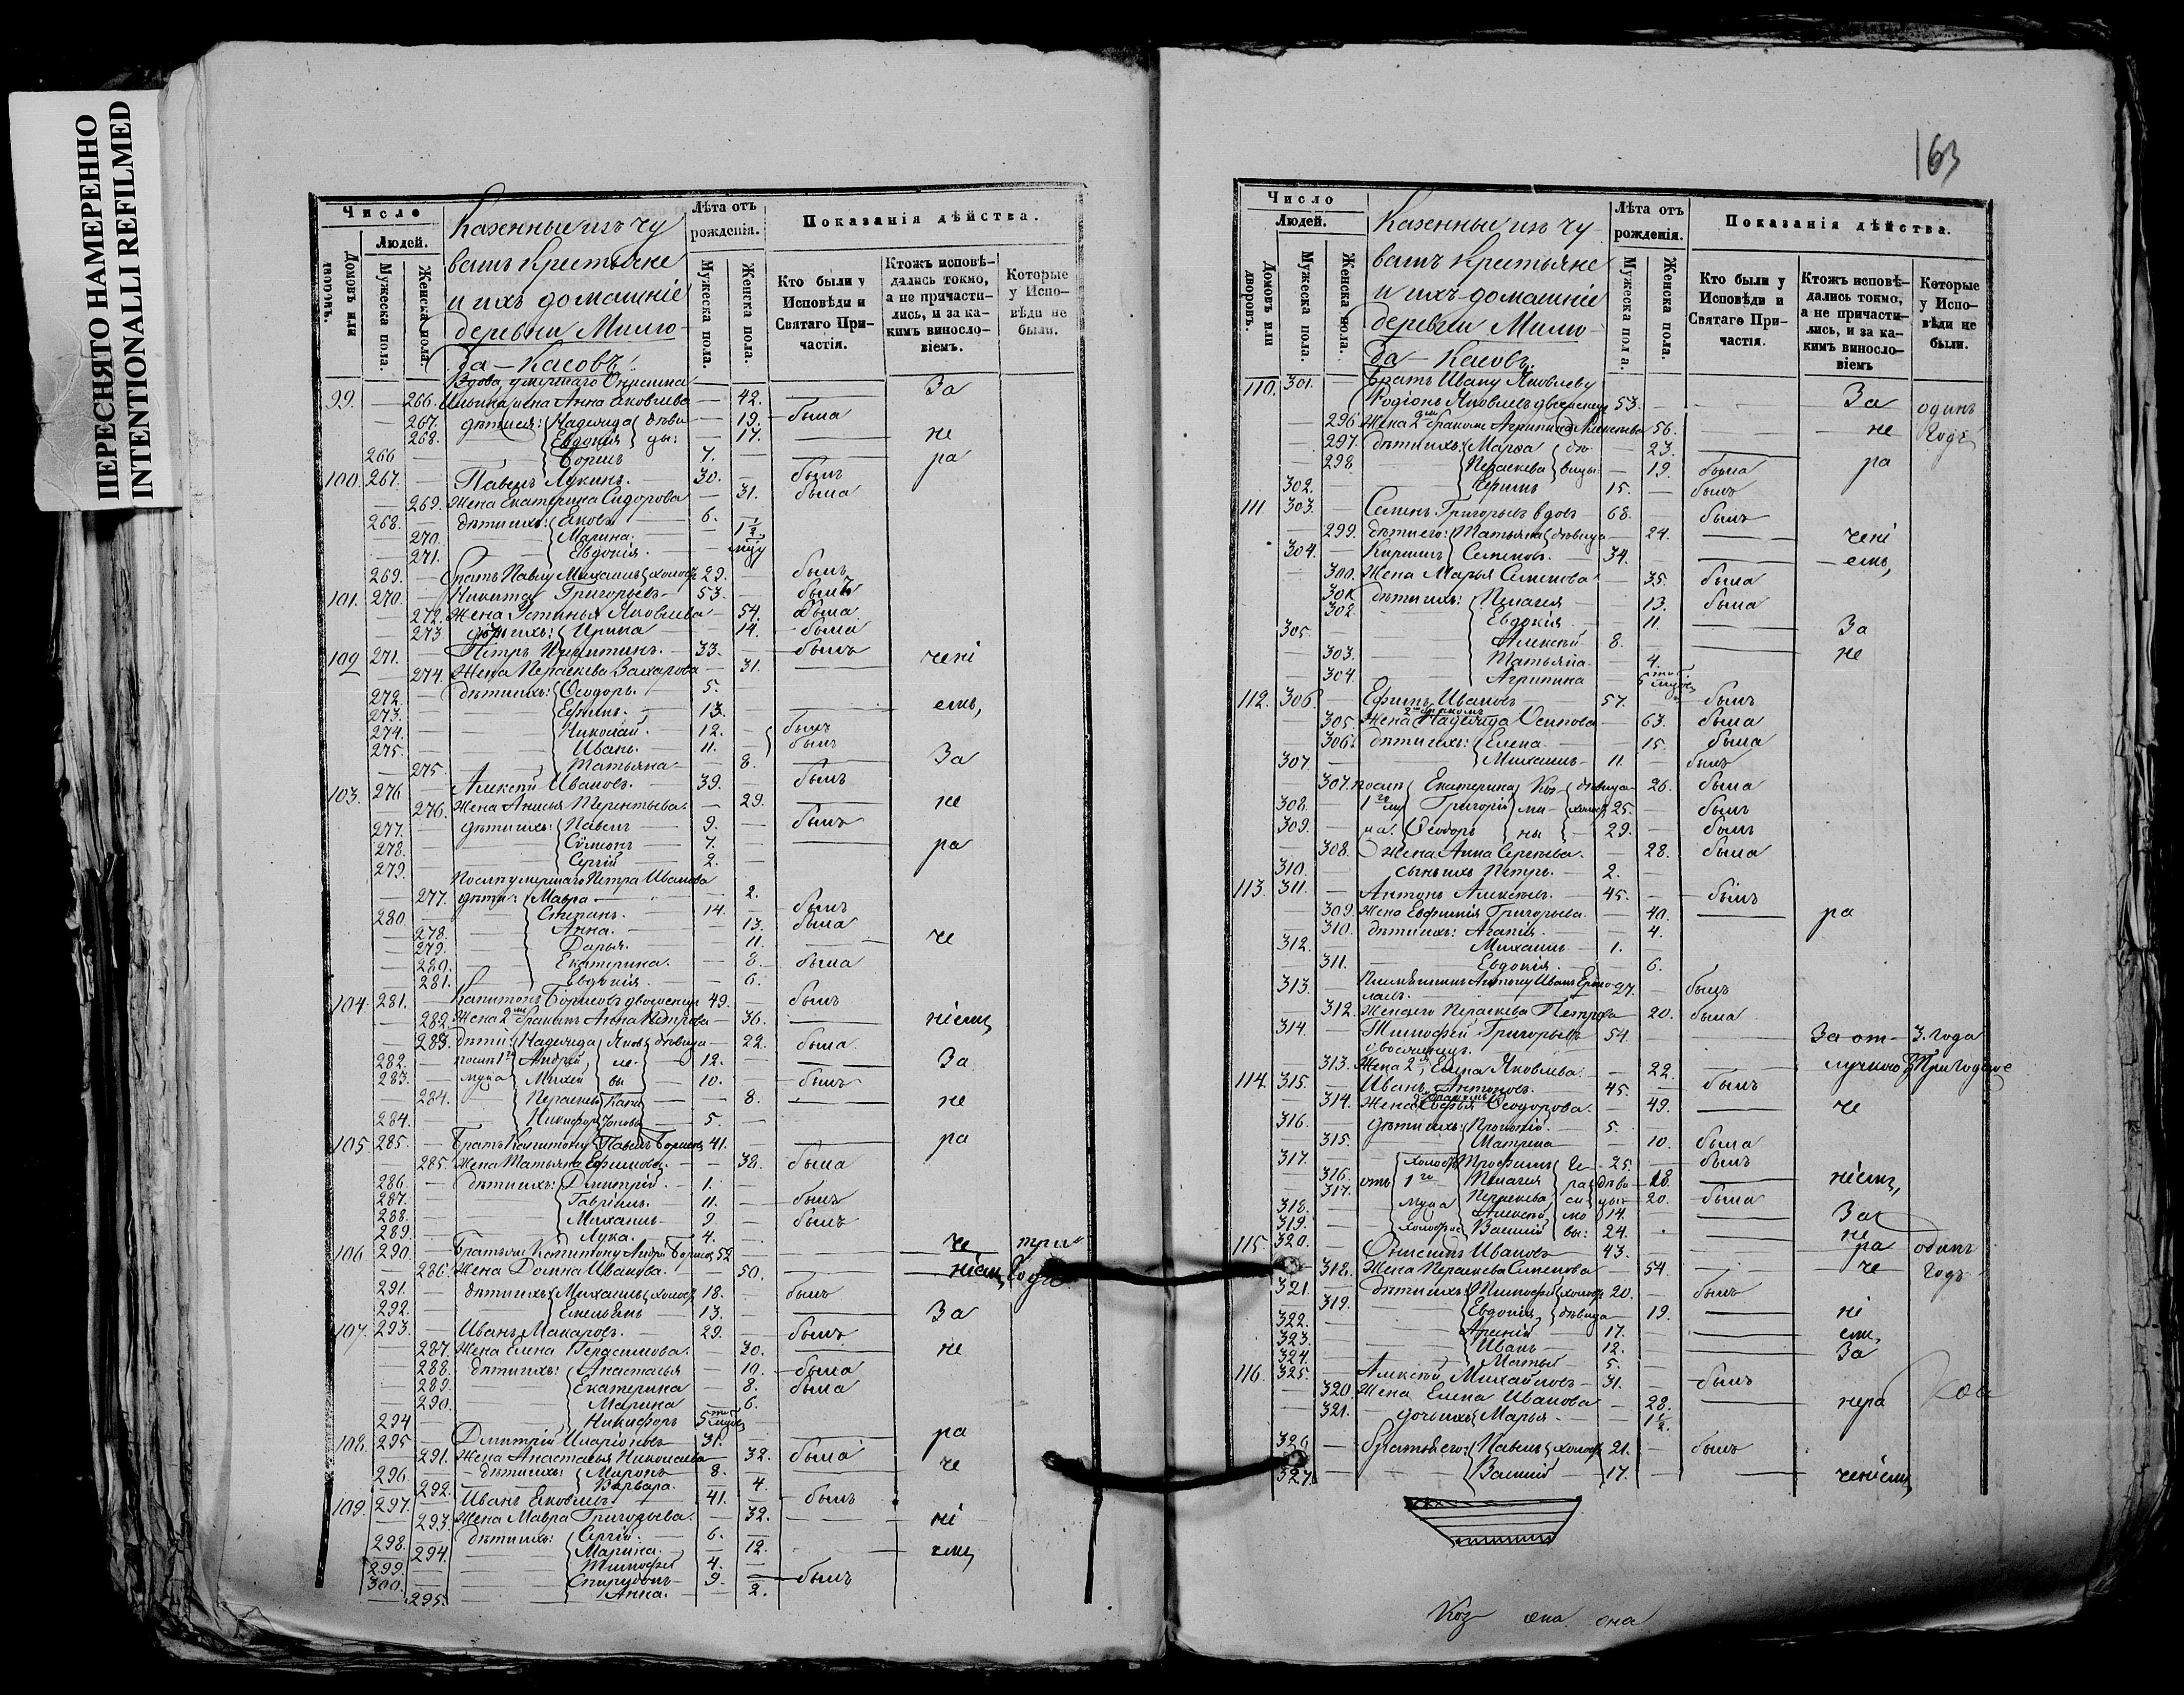 ПЕРЕСНЯТО НАМЕРЕННО
INTENTIONALLI REFILMED
Число
Людей.
Домовъ или дворовъ.
Мужеска пола.
Женска пола.
Казенные изъ чу
вашъ крестьяне
и ихъ домашніе
деревни
Касовъ
Лѣта отъ рожденія.
Мужеска пола.
Женска пола.
Показанія дѣйства.
Кто были у Исповѣди и Святаго Причастія.
Ктожъ исповѣ-
дались токмо,
а не причасти-
лись, и за ка-
кимъ винosло-
віемъ.
Которые
у Испо-
вѣди не
были.
Вдова умершаго Онисима
99. — 266. Ильина жена Анна Яковлева — 42. — За
— 267. дѣти ея: Надежда дѣви — 19. — была
— 268. Евдокія цы: — 17. — не
266 — Борисъ 7. — ра
100. 267. — Павелъ Лукинъ. — 30. — былъ
— 269. Жена Екатерина Сидорова — 31. была
268. — дѣти ихъ: Яковъ — 6. —
— 270. Марина. — 1 1/2
— 271. Евдокія. —
269. — Братъ Павлу Михаилъ холост 29. — былъ
101. 270. — Никита Григорьевъ — 53. — былъ
— 272. Жена Устинья Яковлева — 54. была
— 273. дочь ихъ: Ирина — 14. — была
102 271. — Петръ Никитинъ. — 33. — былъ
— 274. Жена Параскева Захарова — 31. — чені
272. — дѣти ихъ: Ѳеодоръ. — 5.
273. — Ефимъ. — 13. — емъ,
274. — Николай. — 12. — былъ
275. — Иванъ. — 11. — былъ
— 275. Татьяна — 8. — За
103. 276 — Алексѣй Ивановъ. — 39. былъ
— 276. Жена Анисья Терентьева. — 29. — не
277. — дѣти ихъ: Павелъ — 9. — былъ
278. — Сѵмеонъ — 7. —
279. — Сергій — 2. — ра
Послѣ умершаго Петра Иванова
— 277. дѣти: Мавра — 2.
280 — Степанъ. — 14. — былъ
— 278. Анна. — 13. была
— 279. Дарья. — 11. — че
— 280. Екатерина. — 8. — была
— 281. Евдокія. — 6.
104. 281. — Капитонъ Борисовъ двоеженецъ 49. — былъ
— 282. Жена 2мъ бракомъ Анна Петрова — 36. — ніемъ
— 283. дѣти: Надежда Яков дѣвица — 22. была
282. — посл. 1го Андрей ле- — 12. — За
283. — мужа Михей вы — 10. — былъ
— 284. Параскева Капи — 8. — не
284. — Никифоръ тонова — 5. —
105. 285. — Братъ Капитону Павелъ Борисовъ 41. — ра
— 285. Жена Татьяна Ефимова. — 38. была
286. — дѣти ихъ: Дмитрій. — 1.
287. — Гавріилъ. — 11. — былъ
288. — Михаилъ. — 9. — былъ
289. — Лука. — 4.
106. 290. — Братъ Капитону Андрей Борисовъ 52 — че три
— 286. Жена Домна Иванова. — 50. — ніемъ года
291. — дѣти ихъ: Михаилъ холост 18. — былъ
292. — Емельянъ — 13. — За
107. 293. — Иванъ Макаровъ. — 29. — былъ
— 287. Жена Елена Герасимова. — 30. — не
— 288. дѣти ихъ: Анастасья — 10. — была
— 289. Екатерина — 8. — была
— 290. Марина — 6.
294 — Никифоръ 5
108. 295 — Дмитрій Иларіоновъ — 31. — ра
— 291. Жена Анастасья Николаева — 32. была
296. — дѣти ихъ: Миронъ — 8. — че
— 292. Варвара. — 4.
109. 297. — Иванъ Яковлевъ — 41. — былъ
— 293. Жена Мавра Григорьева. — 32. — ні
298. — дѣти ихъ: Сергій. — 6.
— 294. Марина. — 12. — емъ
299. — Тимофей 4. —
300. — Спиридонъ 9. — былъ
— 295. Анна. — 2.
163
Число
Людей.
Домовъ или дворовъ.
Мужеска пола.
Женска пола.
Казенные изъ чу
вашъ крестьяне
и ихъ домашніе
деревни
Касовъ.
Лѣта отъ рожденія.
Мужеска пола.
Женска пола.
Показанія дѣйства.
Кто были у Исповѣди и Святаго Причастія.
Ктожъ исповѣ-
дались токмо,
а не причасти-
лись, и за ка-
кимъ винosло-
віемъ
Которые
у Испо-
вѣди не
были.
110. 301. — Братъ Ивану Яковлеву
Родіонъ Яковлевъ двоеженецъ 53. — За одинъ
— 296. Жена 2мъ бракомъ Агрипина Алексѣева 56. — не годъ
— 297. дѣти ихъ: Марѳа дѣ — 23. —
— 298. Параскева вицы — 19. была ра
302. — Ефимъ 15. — былъ
111. 303. — Семенъ Григорьевъ вдов. — 68. — былъ
— 299. дѣти его: Татьяна дѣвица — 24. — чені
304. — Кирилъ Семеновъ. — 34. — емъ,
— 300. Жена Марья Семенова — 35. была
— 301. дѣти ихъ: Пелагея — 13. была
— 302. Евдокія — 11. — За
305. — Алексѣй — 8. —
— 303. Татьяна — 4. не
— 304. Агрипина
112. 306. — Ефимъ Ивановъ — 57. — былъ
— 305. Жена 2мъ бракомъ Надежда Осипова — 63. была
— 306. дѣти ихъ: Елена — 15. была
307. — Михаилъ — 11. — былъ
— 307. посл. Екатерина Коз дѣвица — 26. была
308. — 1го му Григорій ми холост 25. — былъ
309. — жа. Ѳеодоръ ны — 29. — былъ
— 308. Жена Анна Сергѣева. — 28. была
310. — сынъ ихъ Петръ. — 2.
113. 311. — Антонъ Алексѣевъ. — 45. — былъ
— 309. Жена Евфимія Григорьева. — 40. — ра
— 310. дѣти ихъ: Агапія. — 4.
312. — Михаилъ — 1.
— 311. Евдокія. — 6.
313. — Племянникъ Антону Иванъ Ермо-
лаевъ. — 27. — былъ
— 312. Жена его Параскева Петрова 20. была
314. — Тимофей Григорьевъ — 54. — За от- 3. года
двоеженецъ.
— 313. Жена 2я, Елена Яковлева: — 22. — лучкою
114. 315. — Иванъ Антоновъ. — 45. — былъ
— 314. Жена 2бракомъ Софья Ѳеодорова. — 49. — че
316. — дѣти ихъ: Прокопій. — 5.
— 315. Матрена — 10. была
317. — холост Трофимъ Ге- 25. — былъ
— 316. отъ 1го Пелагея ра дѣви — 18. — ніемъ,
— 317. мужа Параскева си цы — 20. — была
318. — Алексѣй мо 14. — За
319. — холост Василій вы: 24. — не
115. 320. — Онисимъ Ивановъ — 43. — ра одинъ
— 318. Жена Параскева Семенова — 54. — че годъ
321. — дѣти ихъ: Тимофей холост 20. — былъ
— 319. Евдокія дѣвица — 19. — ні
322. — Арсеній 17. — емъ,
323. — Иванъ — 12. — За
324. — Матвей — 5. —
116. 325. — Алексѣй Михайловъ — 31. — былъ
— 320. Жена Елена Иванова — 28. — нера
— 321. дочь ихъ Марья — 1 1/2.
326 — братья его: Павелъ холост 21. — былъ
327. — Василій — 17. — ченіемъ
Коз она она